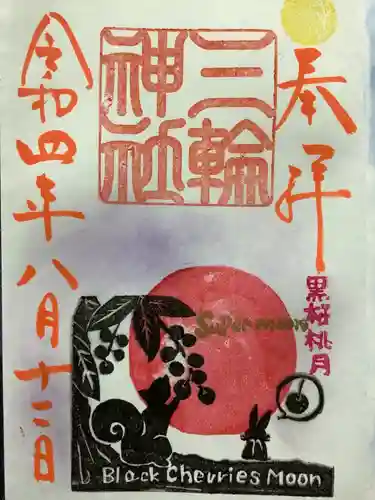 奉拝
三輪
神社
黒桜桃月
令和四年八月十二日
Super moon
Black Cherries Moon